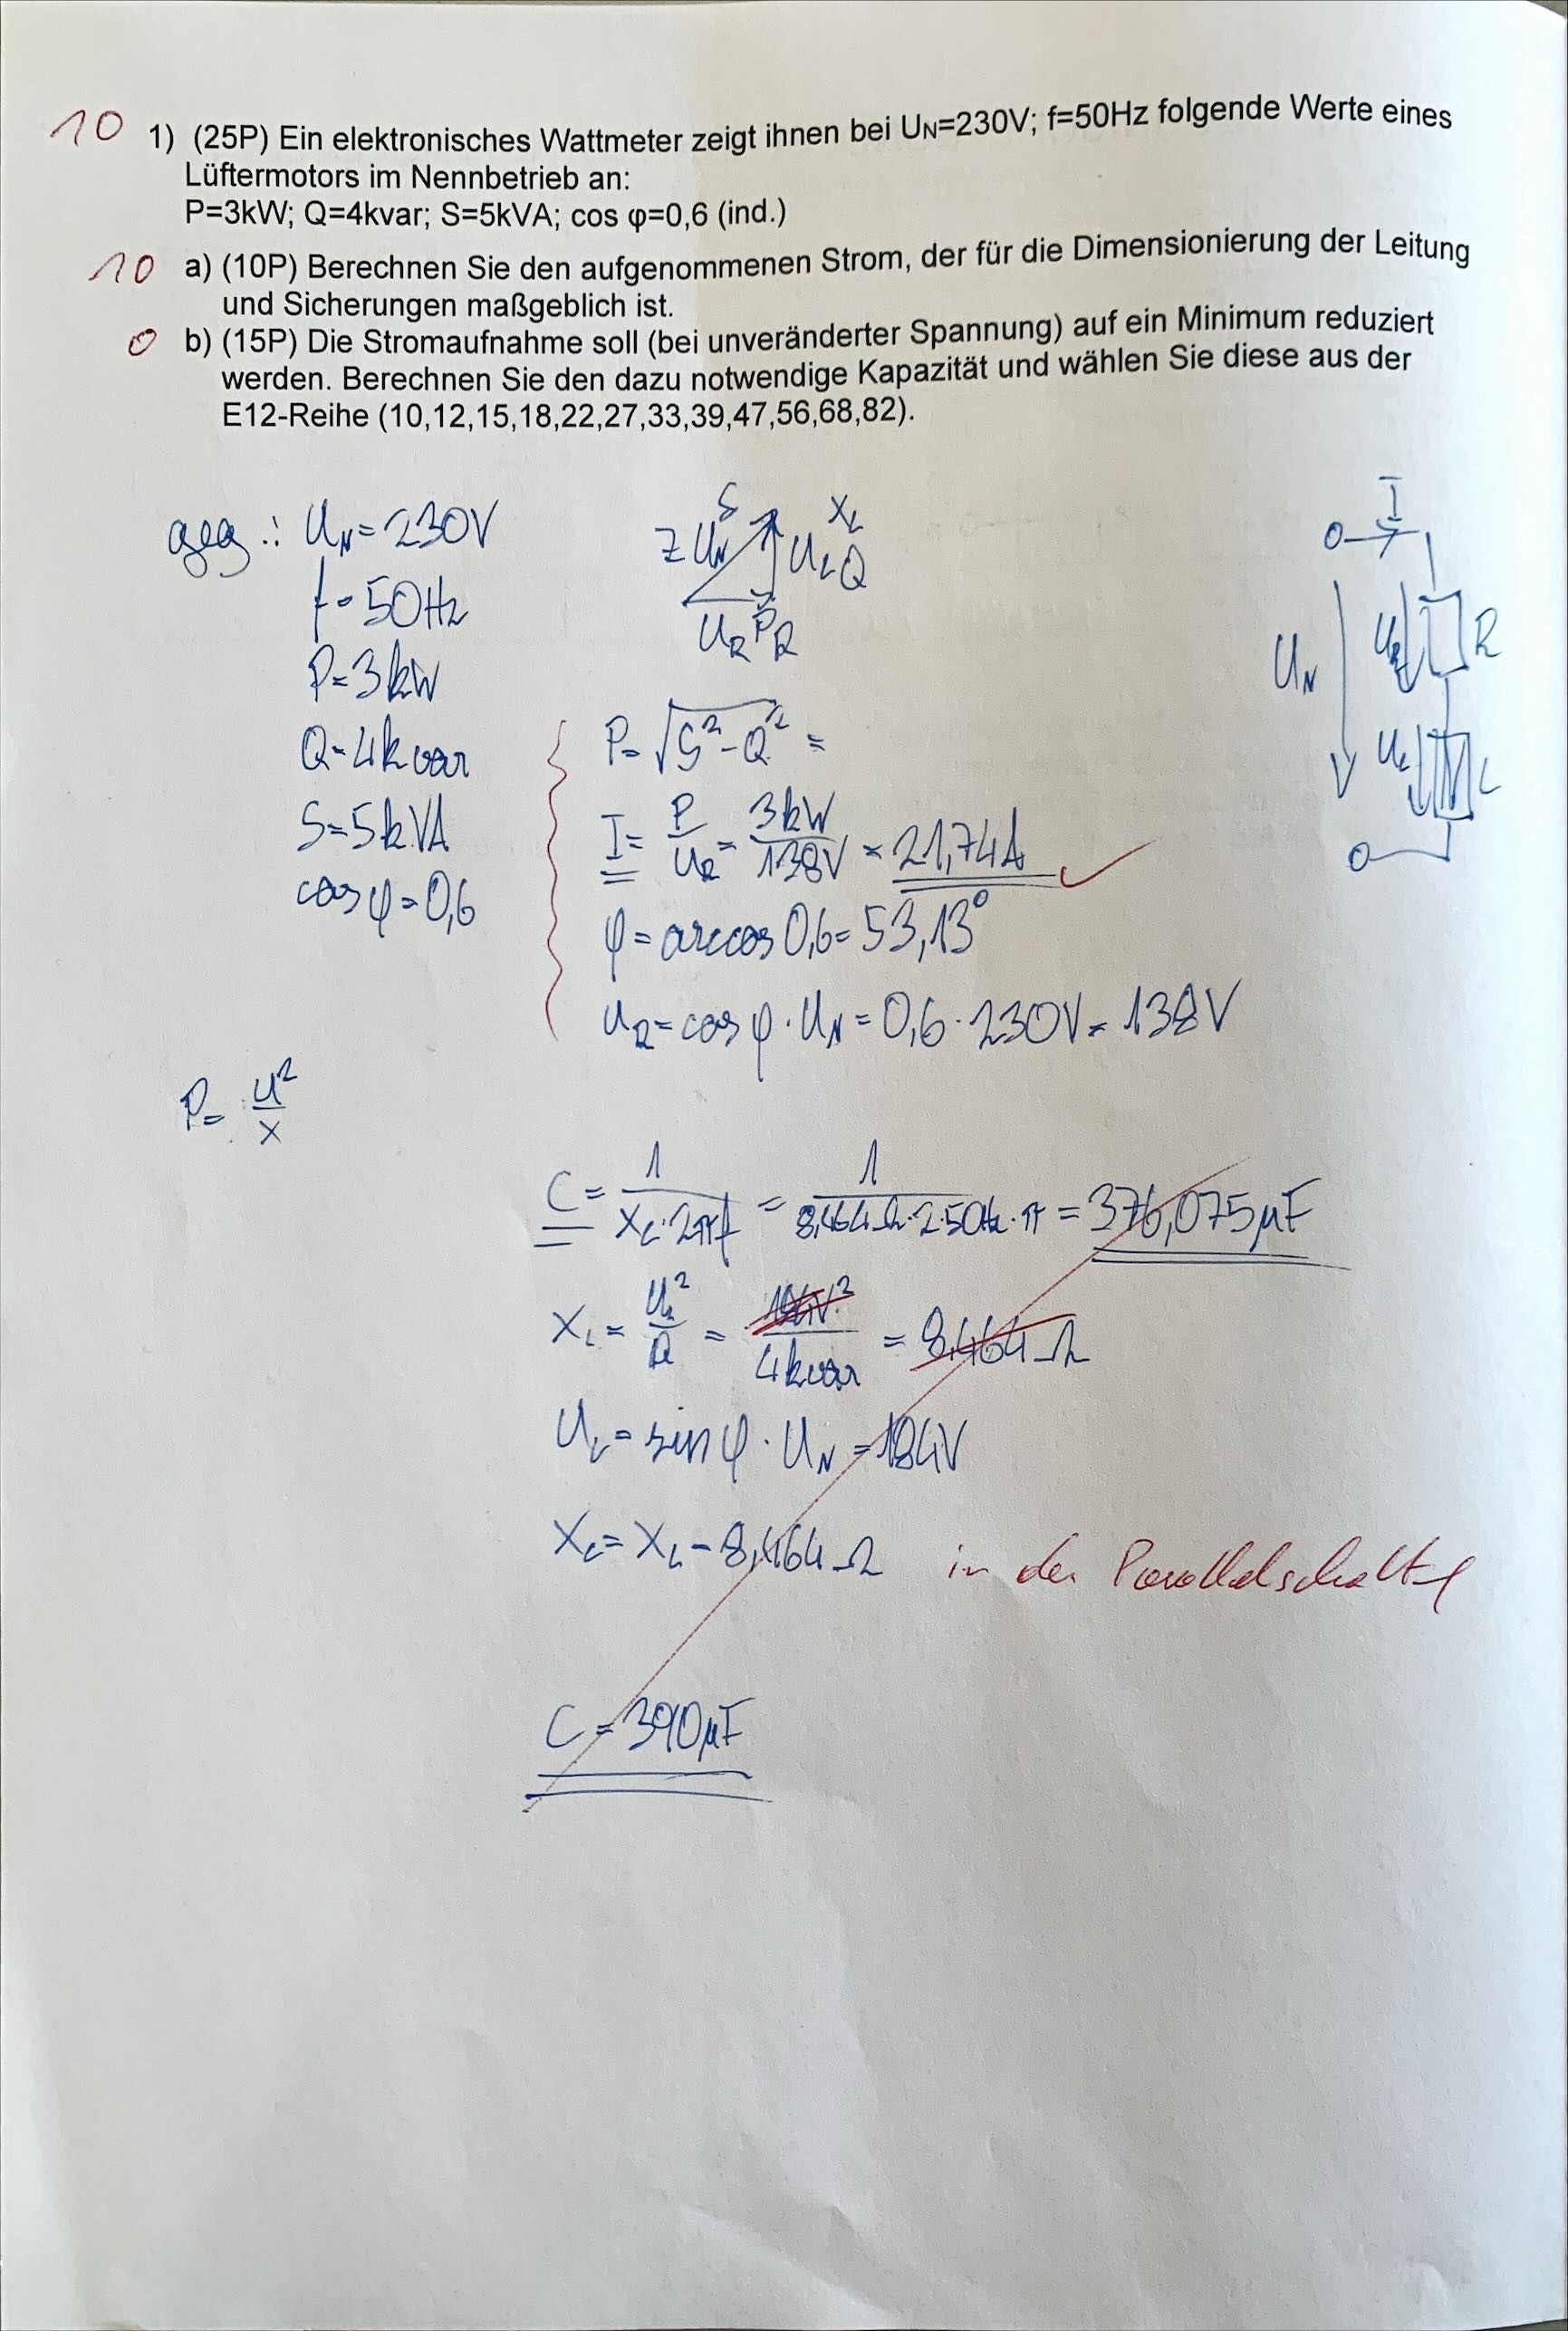 10
1) (25P) Ein elektronisches Wattmeter zeigt ihnen bei UN=230V; f=50Hz folgende Werte eines
Lüftermotors im Nennbetrieb an:
P=3kW; Q=4kvar; S=5kVA; cos φ=0,6 (ind.)
10 a) (10P) Berechnen Sie den aufgenommenen Strom, der für die Dimensionierung der Leitung
und Sicherungen maßgeblich ist.
0 b) (15P) Die Stromaufnahme soll (bei unveränderter Spannung) auf ein Minimum reduziert
werden. Berechnen Sie den dazu notwendige Kapazität und wählen Sie diese aus der
E12-Reihe (10,12,15,18,22,27,33,39,47,56,68,82).
geg.: UN=230V
f=50Hz
P=3kW
Q=4kvar
S=5kVA
cos φ=0,6
S XL
Z UN UL Q
UR P R
I
UN UR R
UL L
P=√(S²-Q²) =
I= P/UR = 3kW/138V = 21,74A ✓
φ=arccos 0,6= 53,13°
UR=cos φ · UN = 0,6 · 230V = 138V
P= U²/X
C= 1/(XC·2πf) = 1/(8,464Ω·2·50Hz·π) = 376,075µF
XL= UL²/Q = 184V²/4kvar = 8,464Ω
UL= sin φ · UN = 184V
XC= XL = 8,464Ω in der Parallelschaltg
C = 390µF